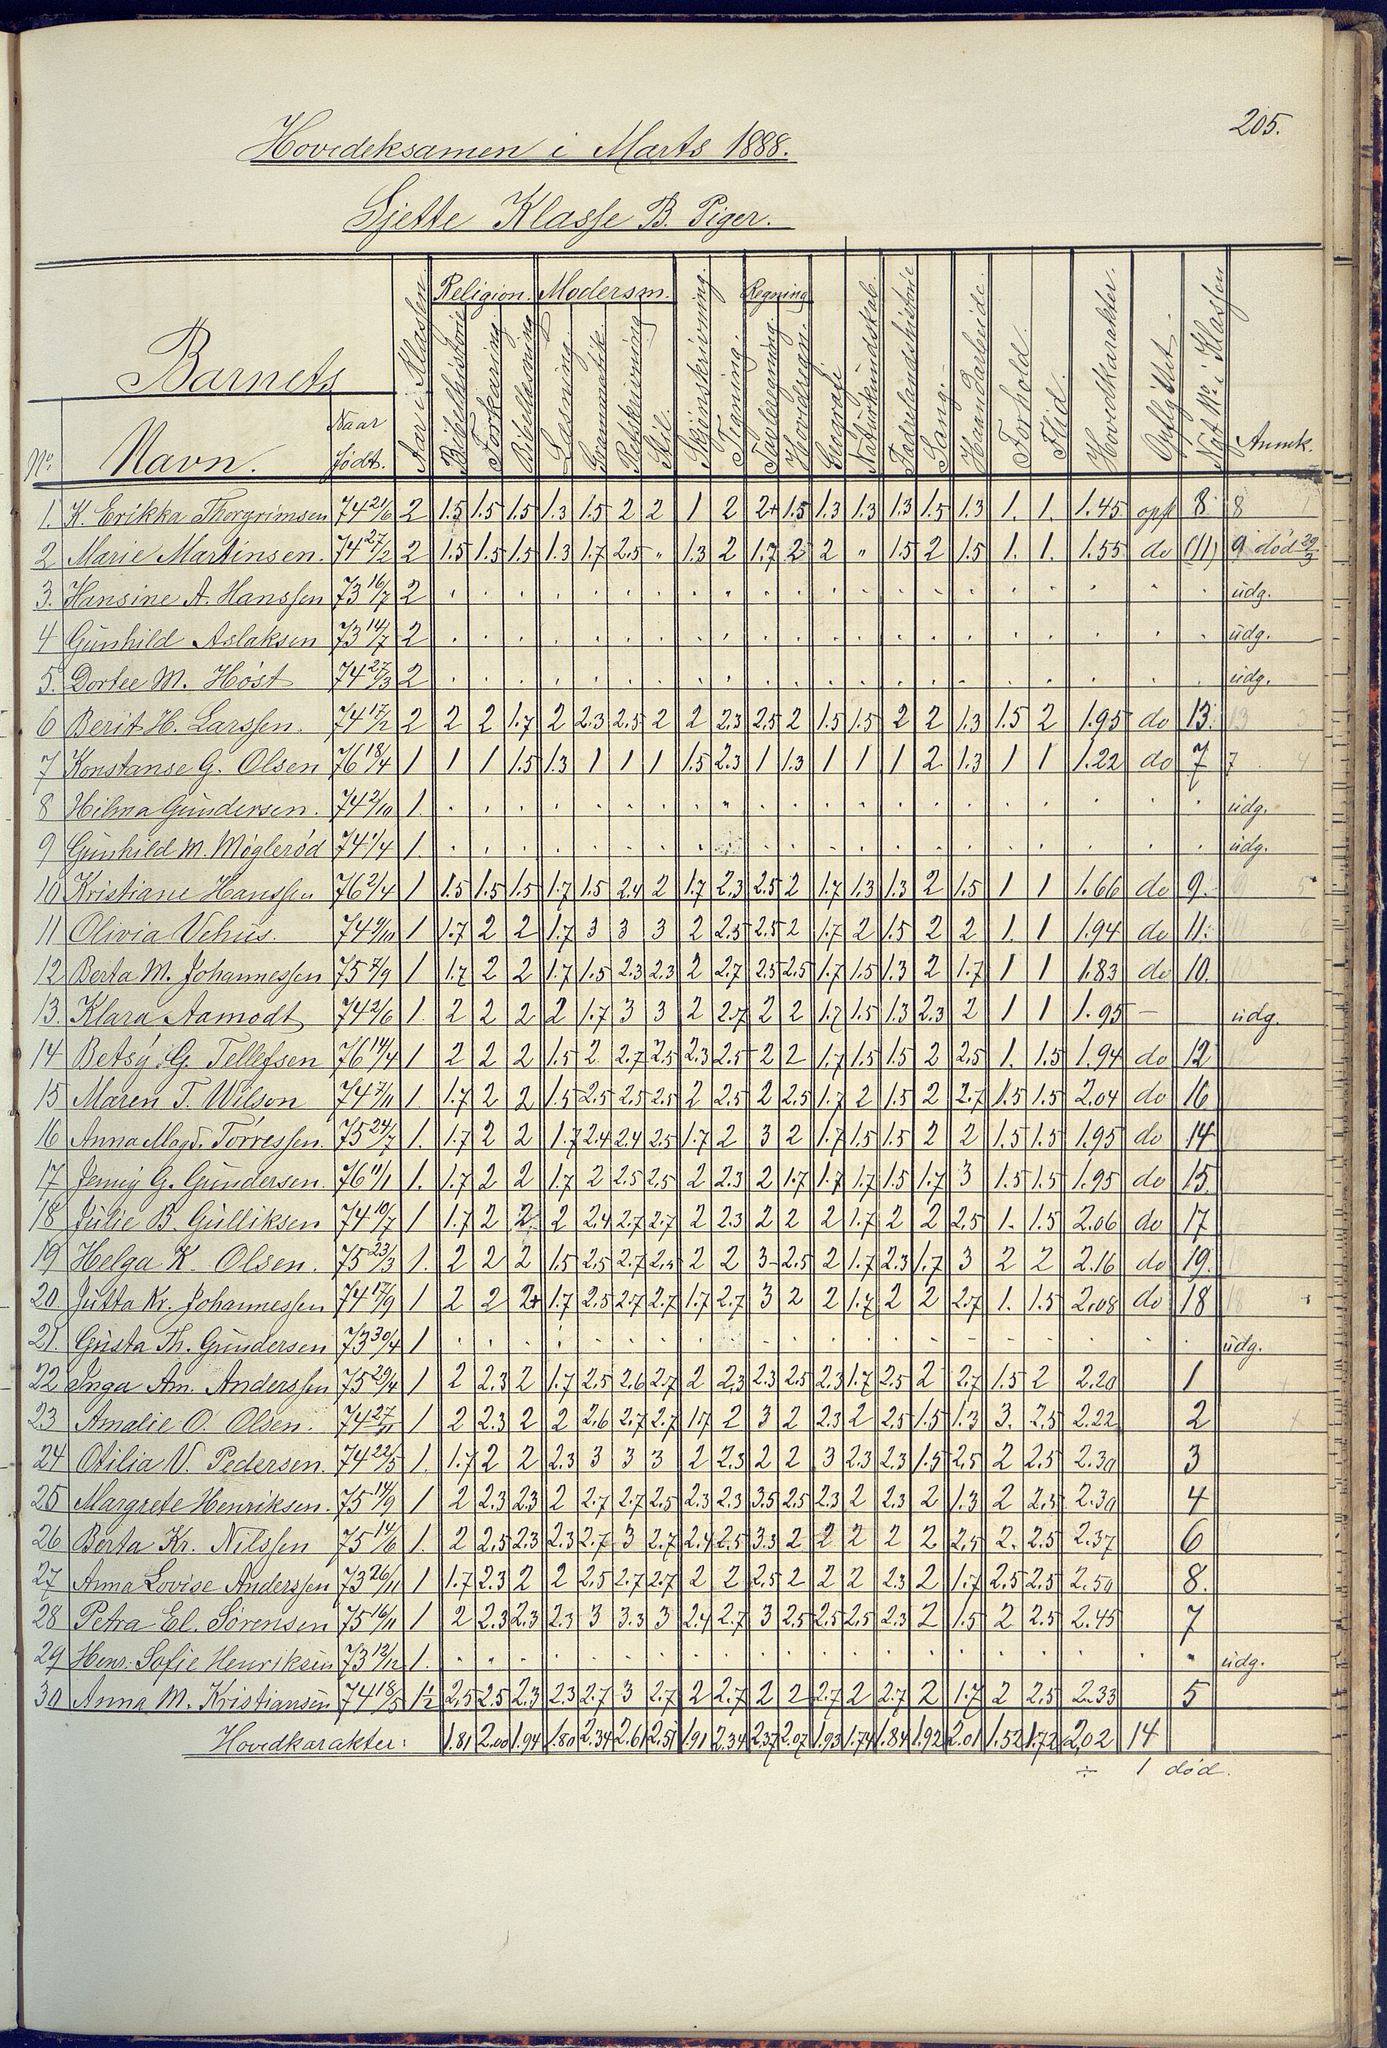 205.
Hovedeksamen i Marts 1888.
Sjette Klasse B. Piger.
Barnets
No. Navn. Naar født. Aar i Klassen Religion. Bibelhistorie Forklaring Bibellæsning Modersm. Læsning. Grammatik. Retskrivning Stil. Skjönskrivning. Tegning. Regning Tavleregning. Hovedregn. Geografi Naturkundskab. Fædrelandshistorie Sang. Haandarbeide. Forhold. Flid. Hovedkarakter. Opflyttet. Nyt No. i Klassen Anmk.
1. K. Erikka Thorgrimsen 74 21/6 2 1.5 1.5 1.5 1.3 1.5 2 2 1 2 2+ 1.5 1.3 1.3 1.3 1.5 1.3 1. 1. 1.45 opfl 8 8
2 Marie Martinsen. 74 27/2 2 1.5 1.5 1.5 1.3 1.7 2.5 " 1.3 2 1.7 2 2 " 1.5 2 1.5 1. 1. 1.55 do (11) 9 død 29/3
3. Hansine A. Hanssen 73 16/7 2 udg.
4 Gunhild Aslaksen 73 14/7 2 udg.
5. Dortee M. Høst 74 27/3 2 udg.
6 Berit H. Larssen. 74 17/2 2 2 2 1.7 2 2.3 2.5 2 2 2.3 2.5 2 1.5 1.5 2 2 1.3 1.5 2 1.95 do 13. 13
7 Konstanse G. Olsen 76 18/4 1 1 1 1.5 1.3 1 1 1 1.5 2.3 1 1.3 1 1 1 2 1.3 1 1 1.22 do 7 7
8 Hilma Gundersen. 74 2/10 1. udg.
9 Gunhild M. Møglerød 74 1/4 1. udg.
10 Kristiane Hanssen 76 2/4 1 1.5 1.5 1.5 1.7 1.5 2.4 2 1.7 2.3 2.5 2 1.7 1.3 1.3 2 1.5 1 1 1.66 do 9.
11 Olivia Vehus. 74 9/11 1 1.7 2 2 1.7 3 3 3 2 2.5 2.5 2 1.7 2 1.5 2 2 1. 1 1.94 do 11.
12 Berta M. Johannessen 75 7/9 1 1.7 2 2 1.7 1.5 2.3 2.3 2 2.7 2.5 2.5 1.7 1.5 1.3 2 1.7 1 1 1.83 do 10.
13. Klara Aamodt 74 2/6 1. 2 2 2 2 1.7 3 3 2 2.7 2 2 1.7 1.5 1.3 2.3 2 1 1 1.95 — udg.
14 Betsy G. Tellefsen 76 14/4 1 2 2 2 1.5 2 2.7 2.5 2.3 2.5 2 2 1.7 1.5 1.5 2 2.5 1. 1.5 1.94 do 12
15 Maren T. Wilson 74 7/11 1. 1.7 2 2 1.5 2.5 2.5 2.5 2 2.5 2 2.5 1.7 2 1.5 2 2.7 1.5 1.5 2.04 do 16
16 Anna Magd. Tørressen. 75 24/7 1. 1.7 2 2 1.7 2.4 2.4 2.5 1.7 2 3 2 1.7 1.5 1.5 2 2 1.5 1.5 1.95 do 14
17 Jenny G. Gundersen. 76 11/1 1. 1.7 2 2 1.7 2 2.5 2.5 2 2.3 2 1.7 1.7 1.7 1.5 1.7 3 1.5 1.5 1.95 do 15
18 Julie B. Gulliksen 74 10/7 1 1.7 2 2 2 2.4 2.7 2.7 2 2.3 2 2 2 1.7 2 2 2.5 1. 1.5 2.06 do 17
19 Helga K. Olsen. 75 23/3 1. 2 2 2 1.5 2.5 2.7 2.4 2 2 3- 2.5 2 1.7 2.3 1.7 3 2 2 2.16 do 19.
20. Jutta Kr. Johannessen 74 17/9 1 2 2 2+ 1.7 2.5 2.7 2.7 1.7 2.7 3 2 2 1.7 2 2 2.7 1. 1.5 2.08 do 18 18
21. Gusta Th. Gundersen 73 30/4 1 udg.
22 Inga Am. Anderssen 75 29/4 1 2 2.3 2 1.7 2.5 2.6 2.7 2 2.3 2.3 2.5 2.3 1.7 2.5 2 2.7 1.5 2 2.20 1
23 Amalie O. Olsen. 74 27/11 1 2 2.3 2 2 2.6 2.7 2.7 1.7 2 3 2 2.3 2 2.5 1.5 1.3 3. 2.5 2.22 2
24 Otilia V. Pedersen. 74 22/5 1. 1.7 2 2 2.3 3 3 3 2 2.3 2 2 3 2.3 2.3 1.5 2.5 2 2.5 2.30 3
25 Margrete Henriksen. 75 14/9 1 2 2.3 2.3 2 2.7 2.7 2.5 2.3 2.3 3.5 2.5 2.3 2 2.3 2 1.3 2 2.3 2.30 4
26 Berta Kr. Nilssen 75 14/6 1. 2 2.5 2.3 2.3 2.7 3 2.7 2.4 2.5 3.3 2 2 2 2 2 2.5 2. 2.5 2.37 6
27 Anna Lovise Anderssen 73 26/11 1 1.7 2.3 2 2 2.5 2.7 2.7 2 2 2.5 2 2 2 2.3 2 1.7 2.5 2.5 2.50 8.
28 Petra El. Sørensen 75 16/11 1 2 2.3 2.3 2.3 3 3.3 3 2.4 2.7 3 2.5 2.5 2.5 2.3 2 1.5 2 2.5 2.45 7
29 Henr. Sofie Henriksen 73 12/12 1. udg.
30 Anna M. Kristiansen 74 18/5 1½ 2.5 2.5 2.3 2.3 2.7 3 2.7 2 2.7 2 2 2.7 2 2.7 2 1.7 2 2.5 2.33 5
Hovedkarakter: 1.81 2.00 1.94 1.80 2.34 2.61 2.51 1.91 2.34 2.37 2.07 1.93 1.74 1.84 1.92 2.01 1.52 1.72 2,02 14
÷ 1 død.